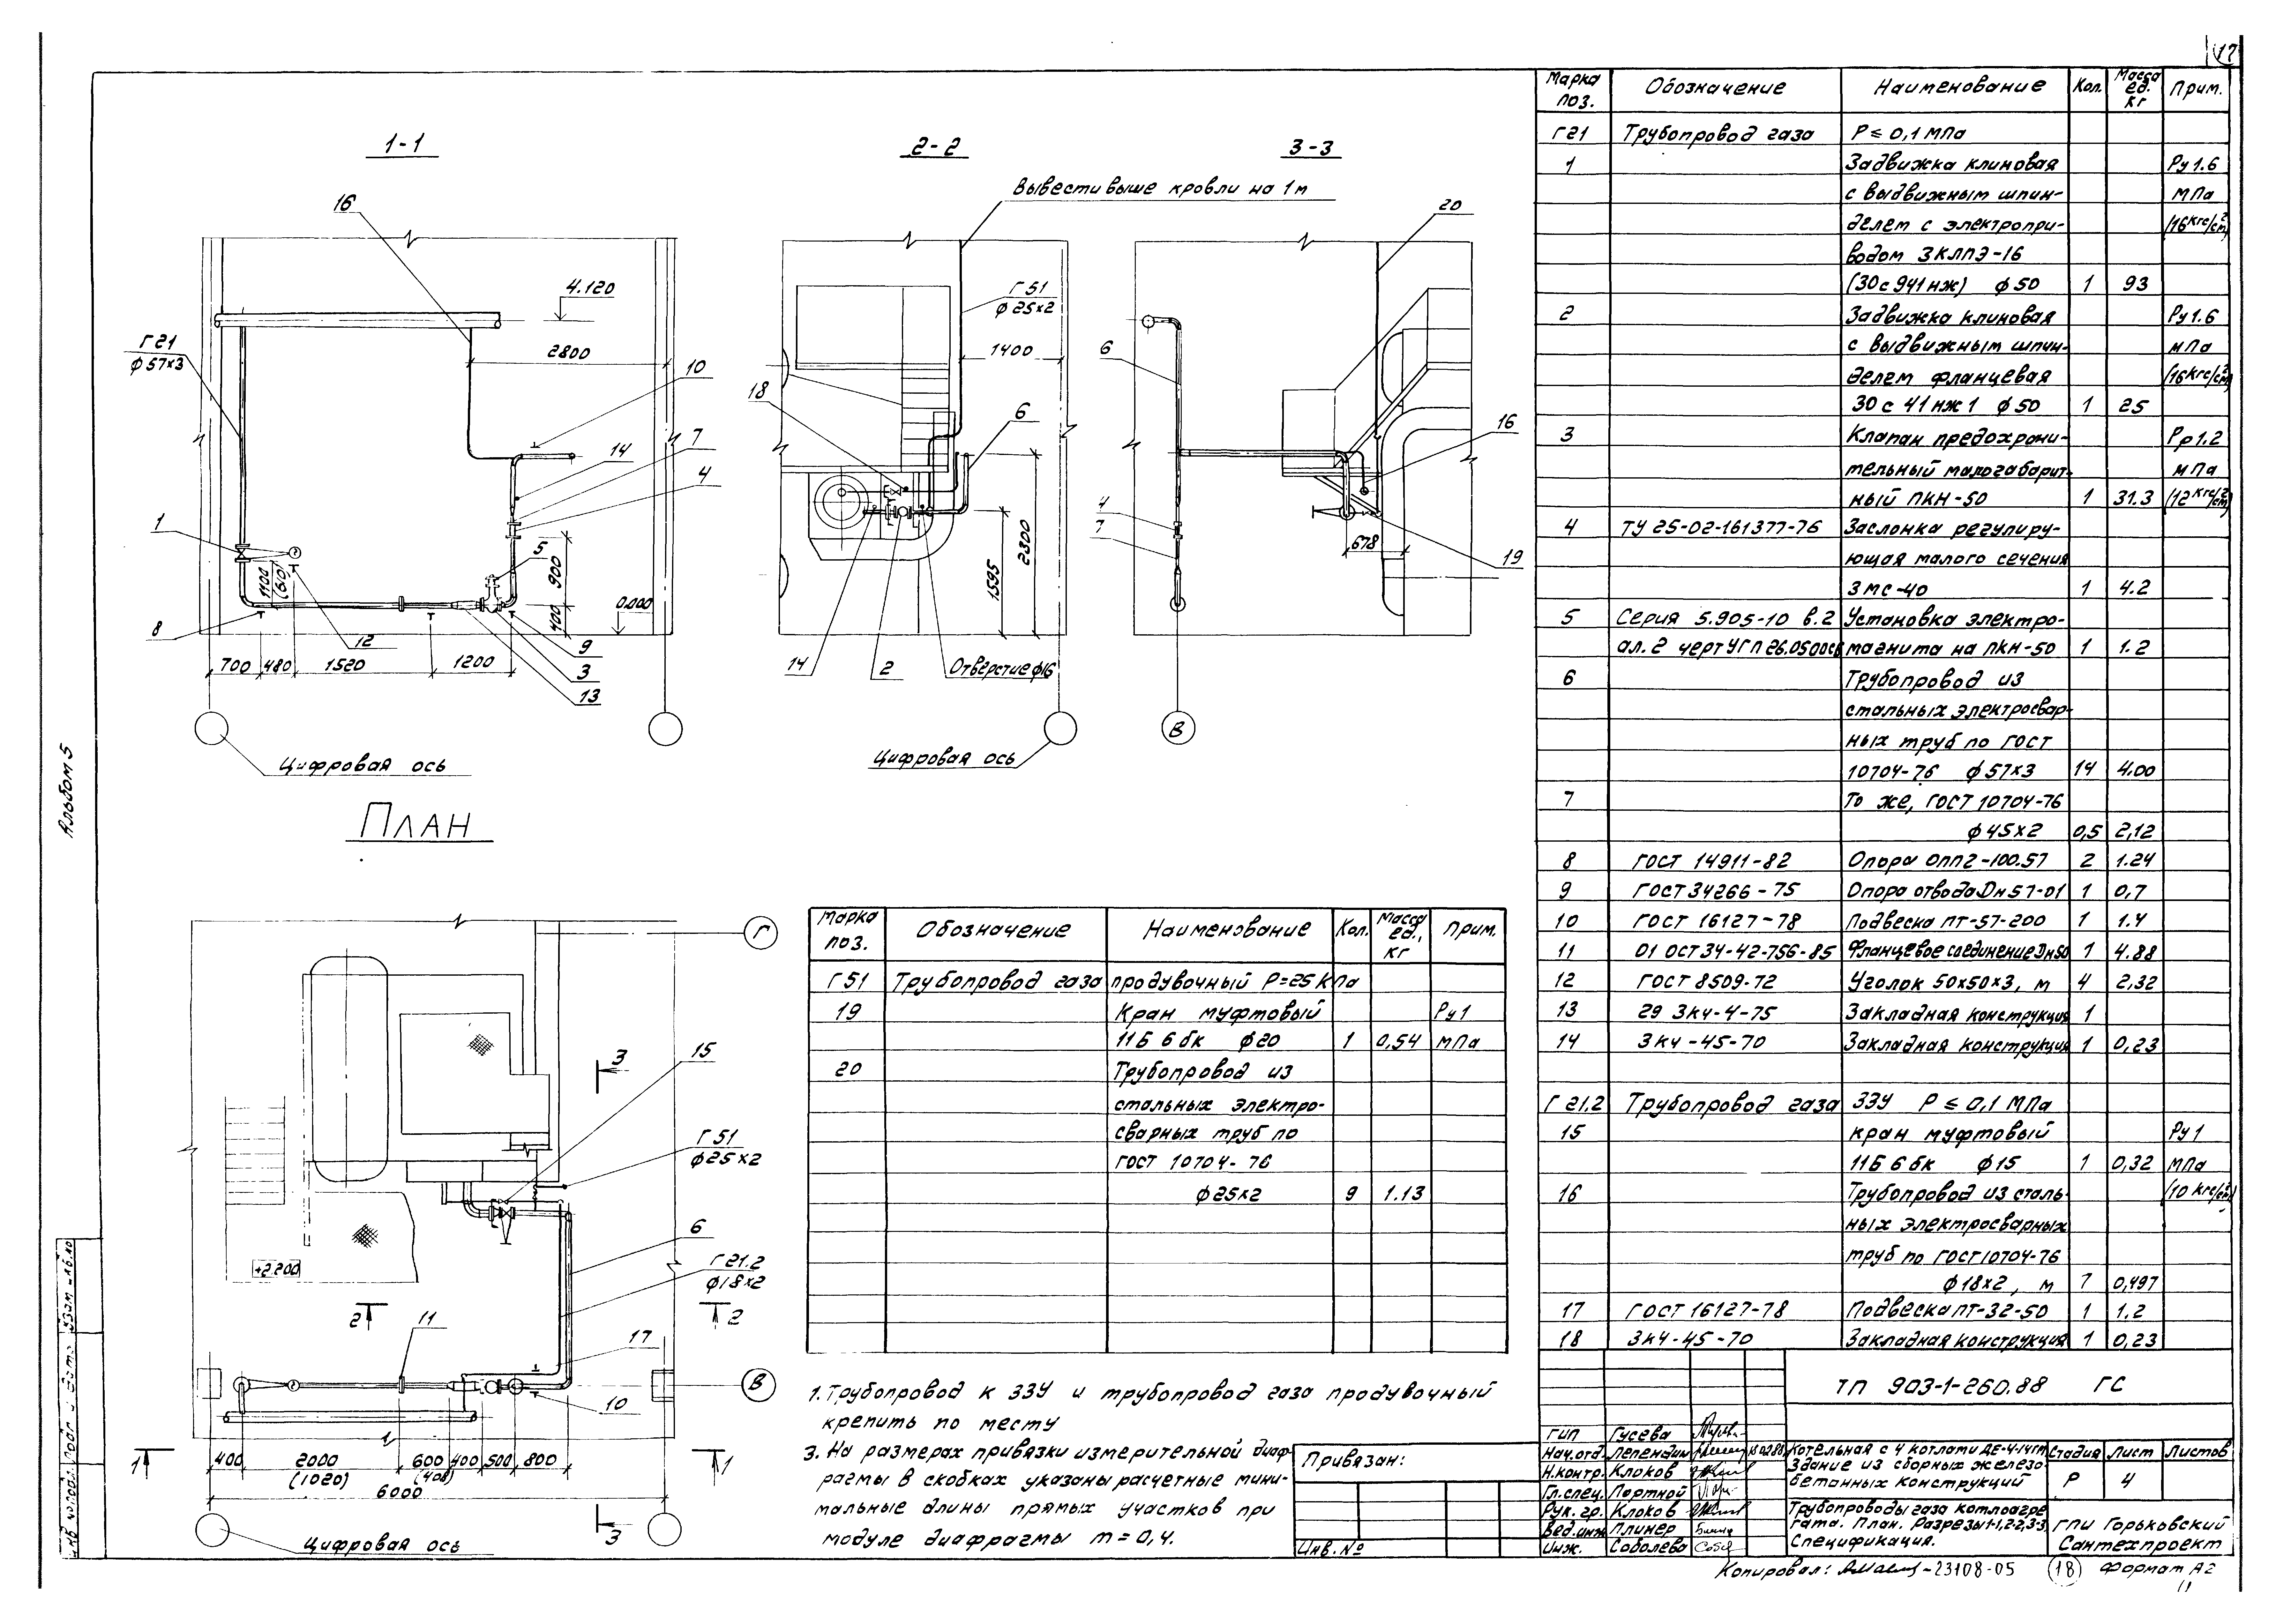 17
Альбом 5
1-1
16
4.120
Г21
ф57х3
2800
10
7
14
4
1
5
1100
(60)
900
400
0.000
8
12
9
3
13
700 480 1520 1200
Цифровая ось
2-2
Вывести выше кровли на 1м
Г51
ф25х2
1400
18
6
1595
2300
14
2
Отверстие ф16
Цифровая ось
3-3
20
6
16
4
7
678
19
В
План
Г
3
15
Г51
ф25х2
6
Г21.2
ф18х2
+2.200
2
2
11
17
В
10
1
400 2000 600 400 500 800
(1020) (400)
6000
1
3
Цифровая ось
Марка поз. Обозначение Наименование Кол. Масса ед., кг Прим.
Г51 Трубопровод газа продувочный Р=25кПа
19 Кран муфтовый Ру1
11Б 6 бк ф20 1 0,54 мПа
20 Трубопровод из
стальных электро-
сварных труб по
гост 10704-76
ф25х2 9 1.13
1. Трубопровод к ЗЗУ и трубопровод газа продувочный
крепить по месту
3. На размерах привязки измерительной диаф-
рагмы в скобках указаны расчетные мини-
мальные длины прямых участков при
модуле диафрагмы m=0,4.
Марка поз. Обозначение Наименование Кол. Масса ед. кг Прим.
Г21 Трубопровод газа Р ≤ 0,1 МПа
1 Задвижка клиновая Ру1.6
с выдвижным шпин- МПа
делем с электропри- (16кгс/см²)
водом ЗКЛПЭ-16
(30с941нж) ф50 1 93
2 Задвижка клиновая Ру1.6
с выдвижным шпин- мПа
делем фланцевая (16кгс/см²)
30с41нж1 ф50 1 25
3 Клапан предохрани- Рр1.2
тельный малогабарит- мПа
ный ПКН-50 1 31.3 (12кгс/см²)
4 ТУ 25-02-161377-76 Заслонка регулиру-
ющая малого сечения
ЗМС-40 1 4.2
5 Серия 5.905-10 в.2 Установка электро-
ал.2 черт УГП26.0500СБ магнита на ПКН-50 1 1.2
6 Трубопровод из
стальных электросвар-
ных труб по ГОСТ
10704-76 ф57х3 14 4.00
7 То же, ГОСТ 10704-76
ф45х2 0,5 2,12
8 ГОСТ 14911-82 Опора ОПП2-100.57 2 1.24
9 ГОСТ 34266-75 Опора отвода Дн57-01 1 0,7
10 ГОСТ 16127-78 Подвеска ПТ-57-200 1 1.4
11 01 ОСТ 34-42-756-85 Фланцевое соединение Dн50 1 4.88
12 ГОСТ 8509-72 Уголок 50х50х3, м 4 2,32
13 29 ЗК4-4-75 Закладная конструкция 1
14 ЗК4-45-70 Закладная конструкция 1 0,23
Г21.2 Трубопровод газа ЗЗУ Р ≤ 0,1 МПа
15 кран муфтовый Ру1
11Б 6 бк ф15 1 0,32 МПа
16 Трубопровод из сталь- (10 кгс/см²)
ных электросварных
труб по ГОСТ 10704-76
ф18х2, м 7 0,497
17 ГОСТ 16127-78 Подвеска ПТ-32-50 1 1.2
18 ЗК4-45-70 Закладная конструкция 1 0,23
ТП 903-1-260.88 ГС
Привязан:
Инв.№
гип Гусева
Нач.отд. Лепендин
Н.контр. Клоков
Гл.спец. Портной
Рук.гр. Клоков
Вед.инж Плинер
Инж. Соболева
Котельная с 4 котлами ДЕ-4-14гм
Здание из сборных железо-
бетонных конструкций
Стадия Лист Листов
Р 4
Трубопроводы газа котлоагре-
гата. План. Разрезы 1-1, 2-2, 3-3
Спецификация.
ГПИ Горьковский
Сантехпроект
Копировал: 23108-05 18 Формат А2